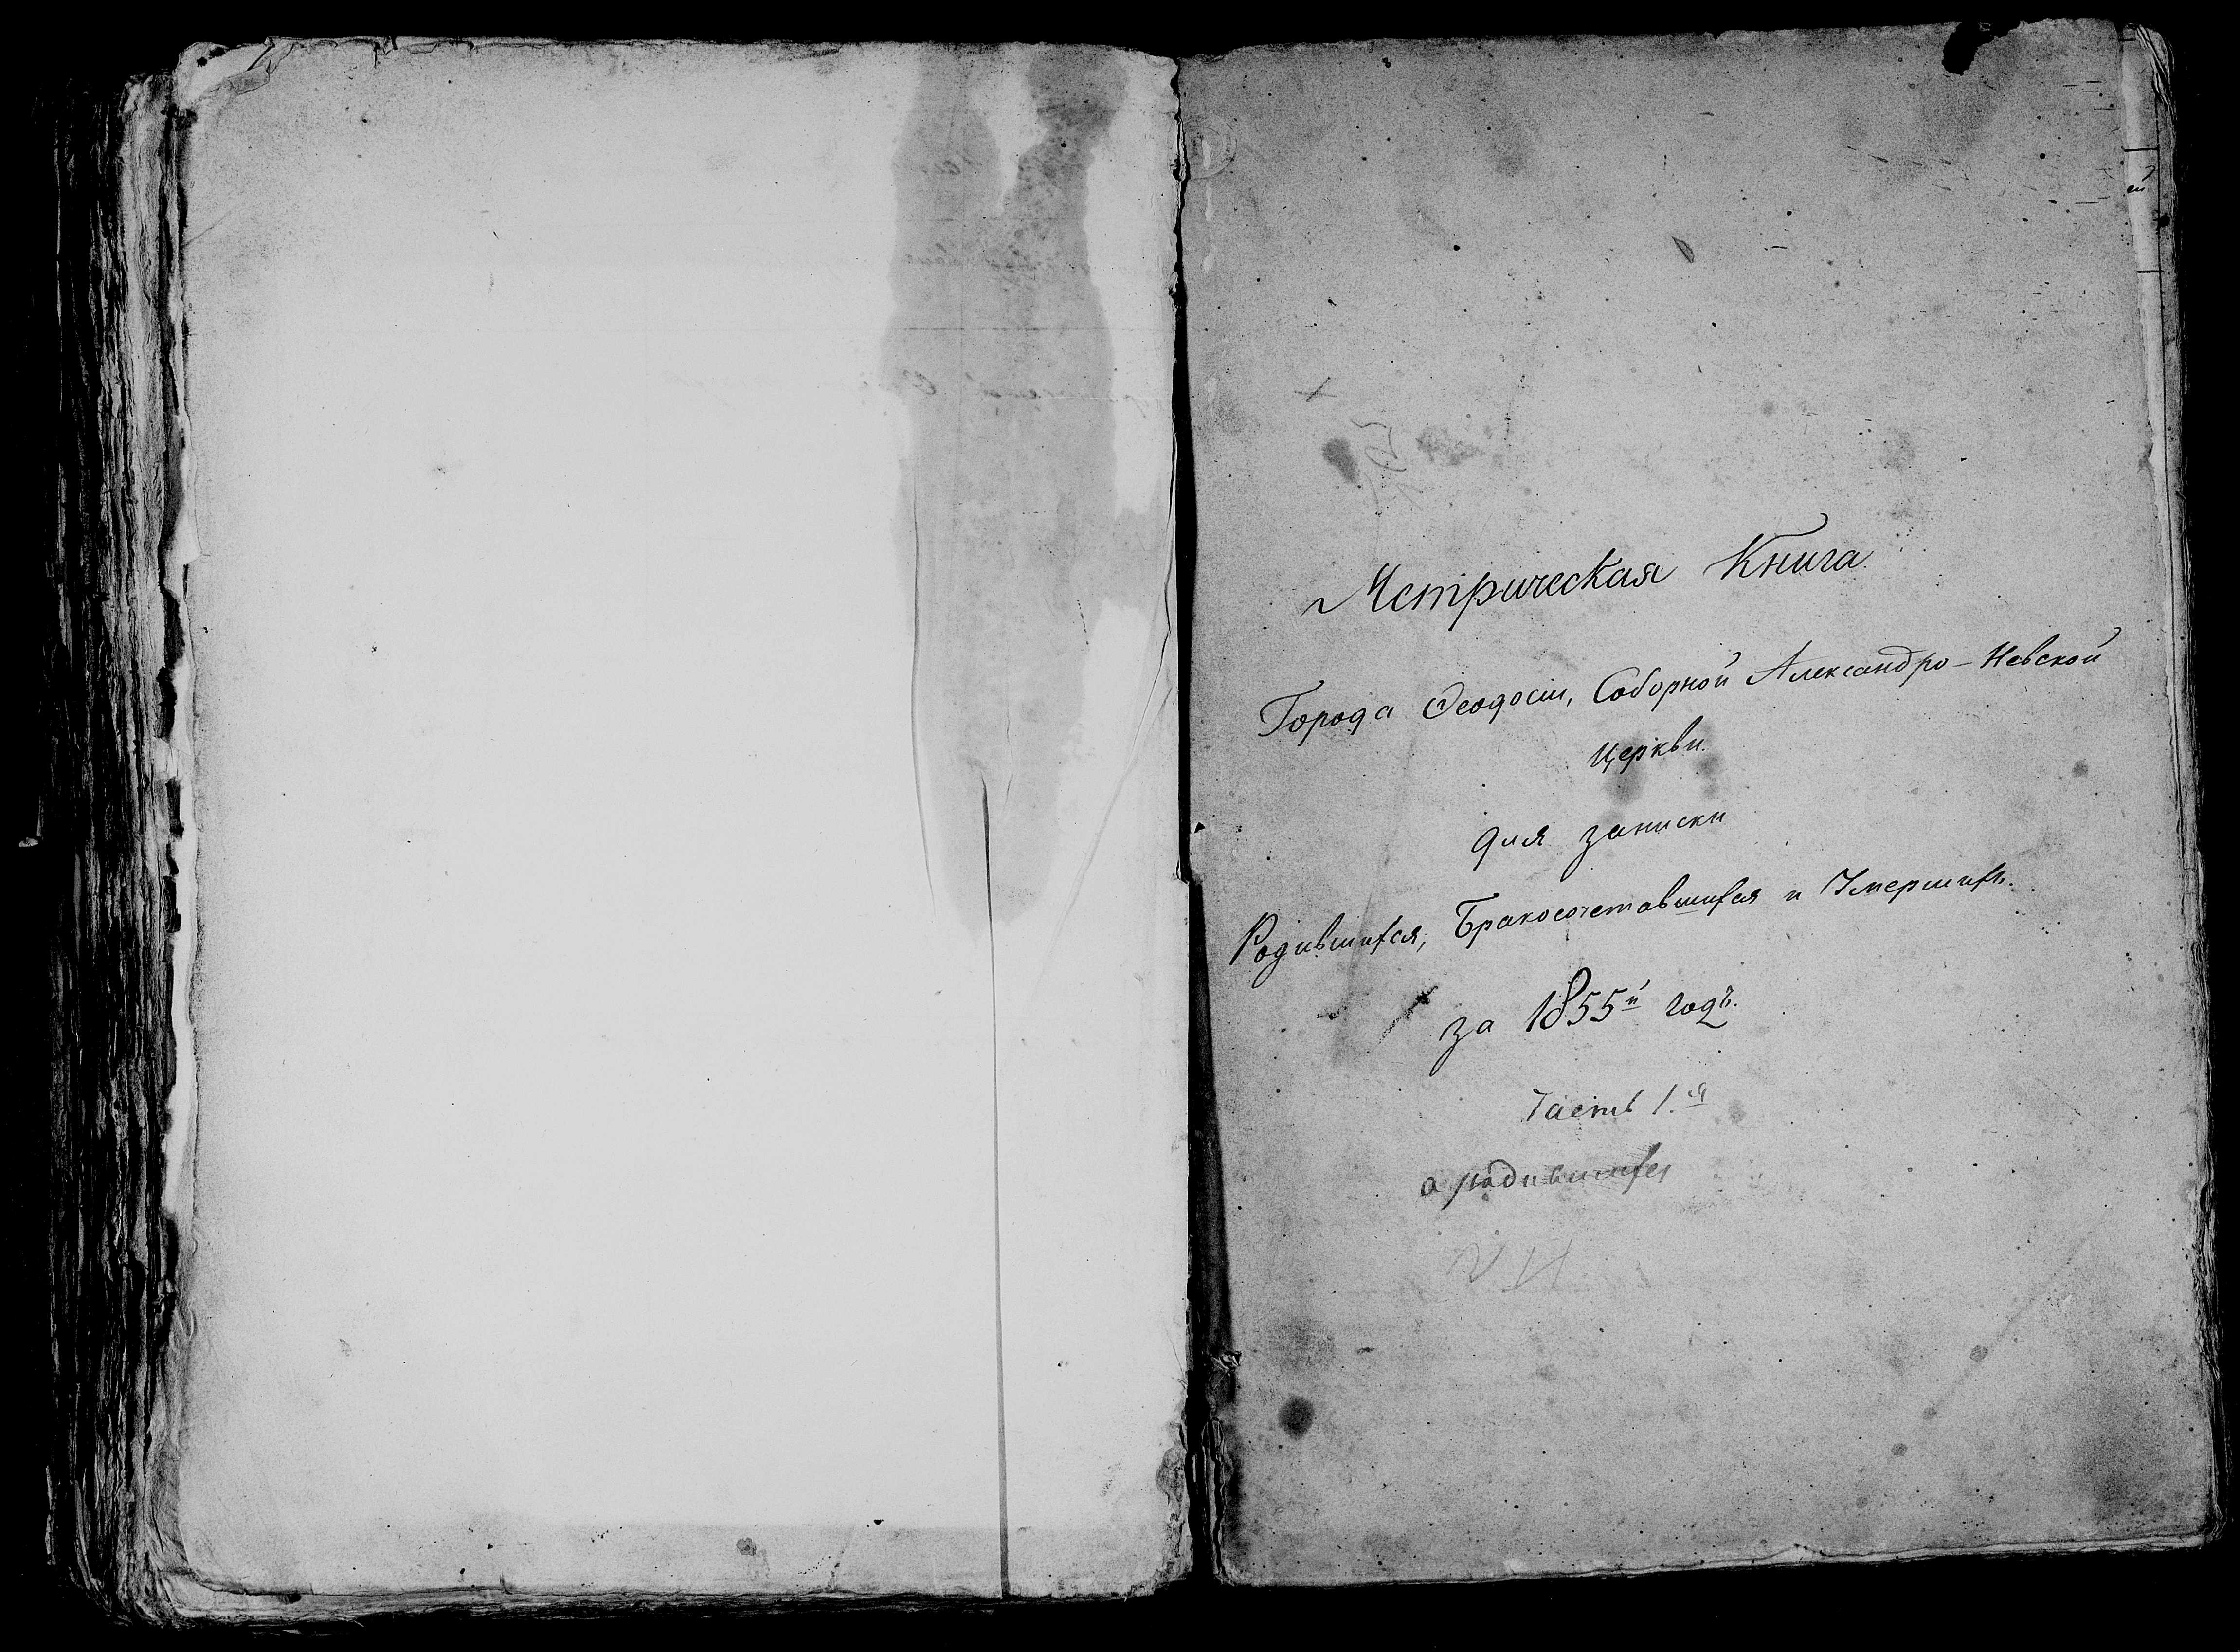 Метрическая Книга
Города Ѳеодосіи, Соборной Александро-Невской
Церкви
для записки
Родившихся, Бракосочетавшихся и Умершихъ.
за 1855й годъ.
Часть 1.я
о родившихся